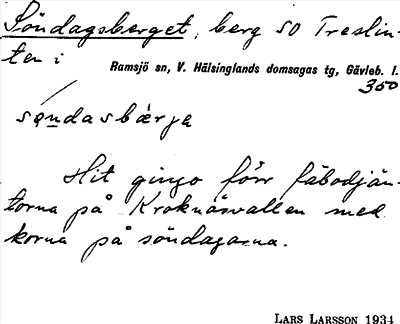 Söndagsberget, berg SO Treslin-
ten i
Ramsjö sn, V. Hälsinglands domsagas tg, Gävleb. l.
350
sǫndasbærja
Hit gingo förr fäbodjän-
torna på Kroknäsvallen med
korna på söndagarna.
LARS LARSSON 1934